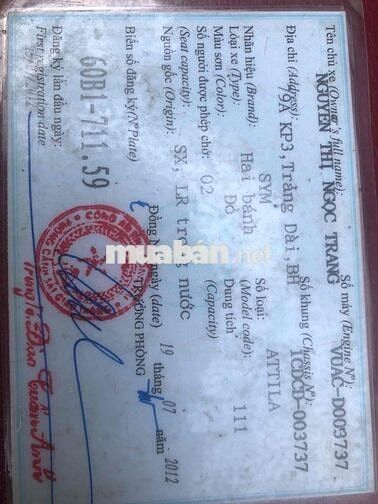 Tên chủ xe (Owner's full name):
NGUYỄN THỊ NGỌC TRANG
Địa chỉ (Address):
79A KP3, Trảng Dài, BH
Nhãn hiệu (Brand): SYM
Số máy (Engine Nº): VUAC-D003737
Số khung (Chassis Nº): 1CDCD-003737
Số loại: ATTILA
(Model code):
Loại xe (Type): Hai bánh
Màu sơn (Color): Đỏ
Dung tích 111
(Capacity)
Số người được phép chở: 02
(Seat capacity):
Nguồn gốc (Origin): SX, LR trong nước
Biển số đăng ký (Nº Plate)
60B1-711.59
Đăng ký lần đầu ngày:
First registration date
Đồng ngày (date) 19 tháng 07 năm 2012
TRƯỞNG PHÒNG
muaban.net